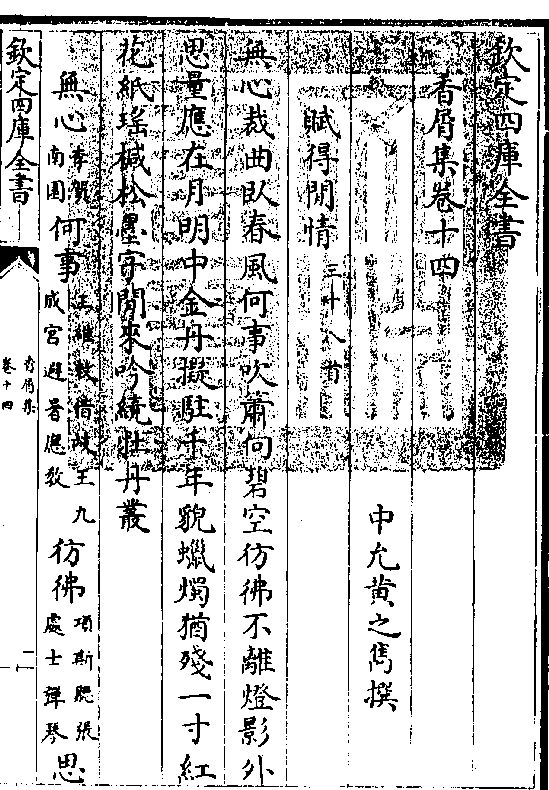 欽定四庫全書
香屑集卷十四
中允黄之雋撰
賦得閒情三十八首
無心裁曲臥春風何事吹簫向碧空彷彿不離燈影外
思量應在月明中金丹擬駐千年貌蠟燭猶殘一寸紅
花紙瑶緘松墨字閒來吟繞牡丹叢
無心李賀南園何事王維敕借岐王九成宮避暑應教彷彿項斯聽張處士彈琴思
欽定四庫全書
香屑集
卷十四
一